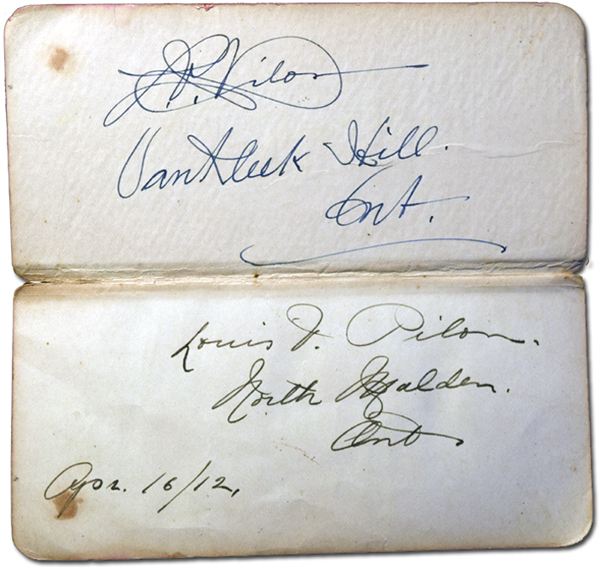 J.P. Pilon
Vankleek Hill.
Ont.
Louis J. Pilon.
North Malden.
Ont
Apr. 16/12,